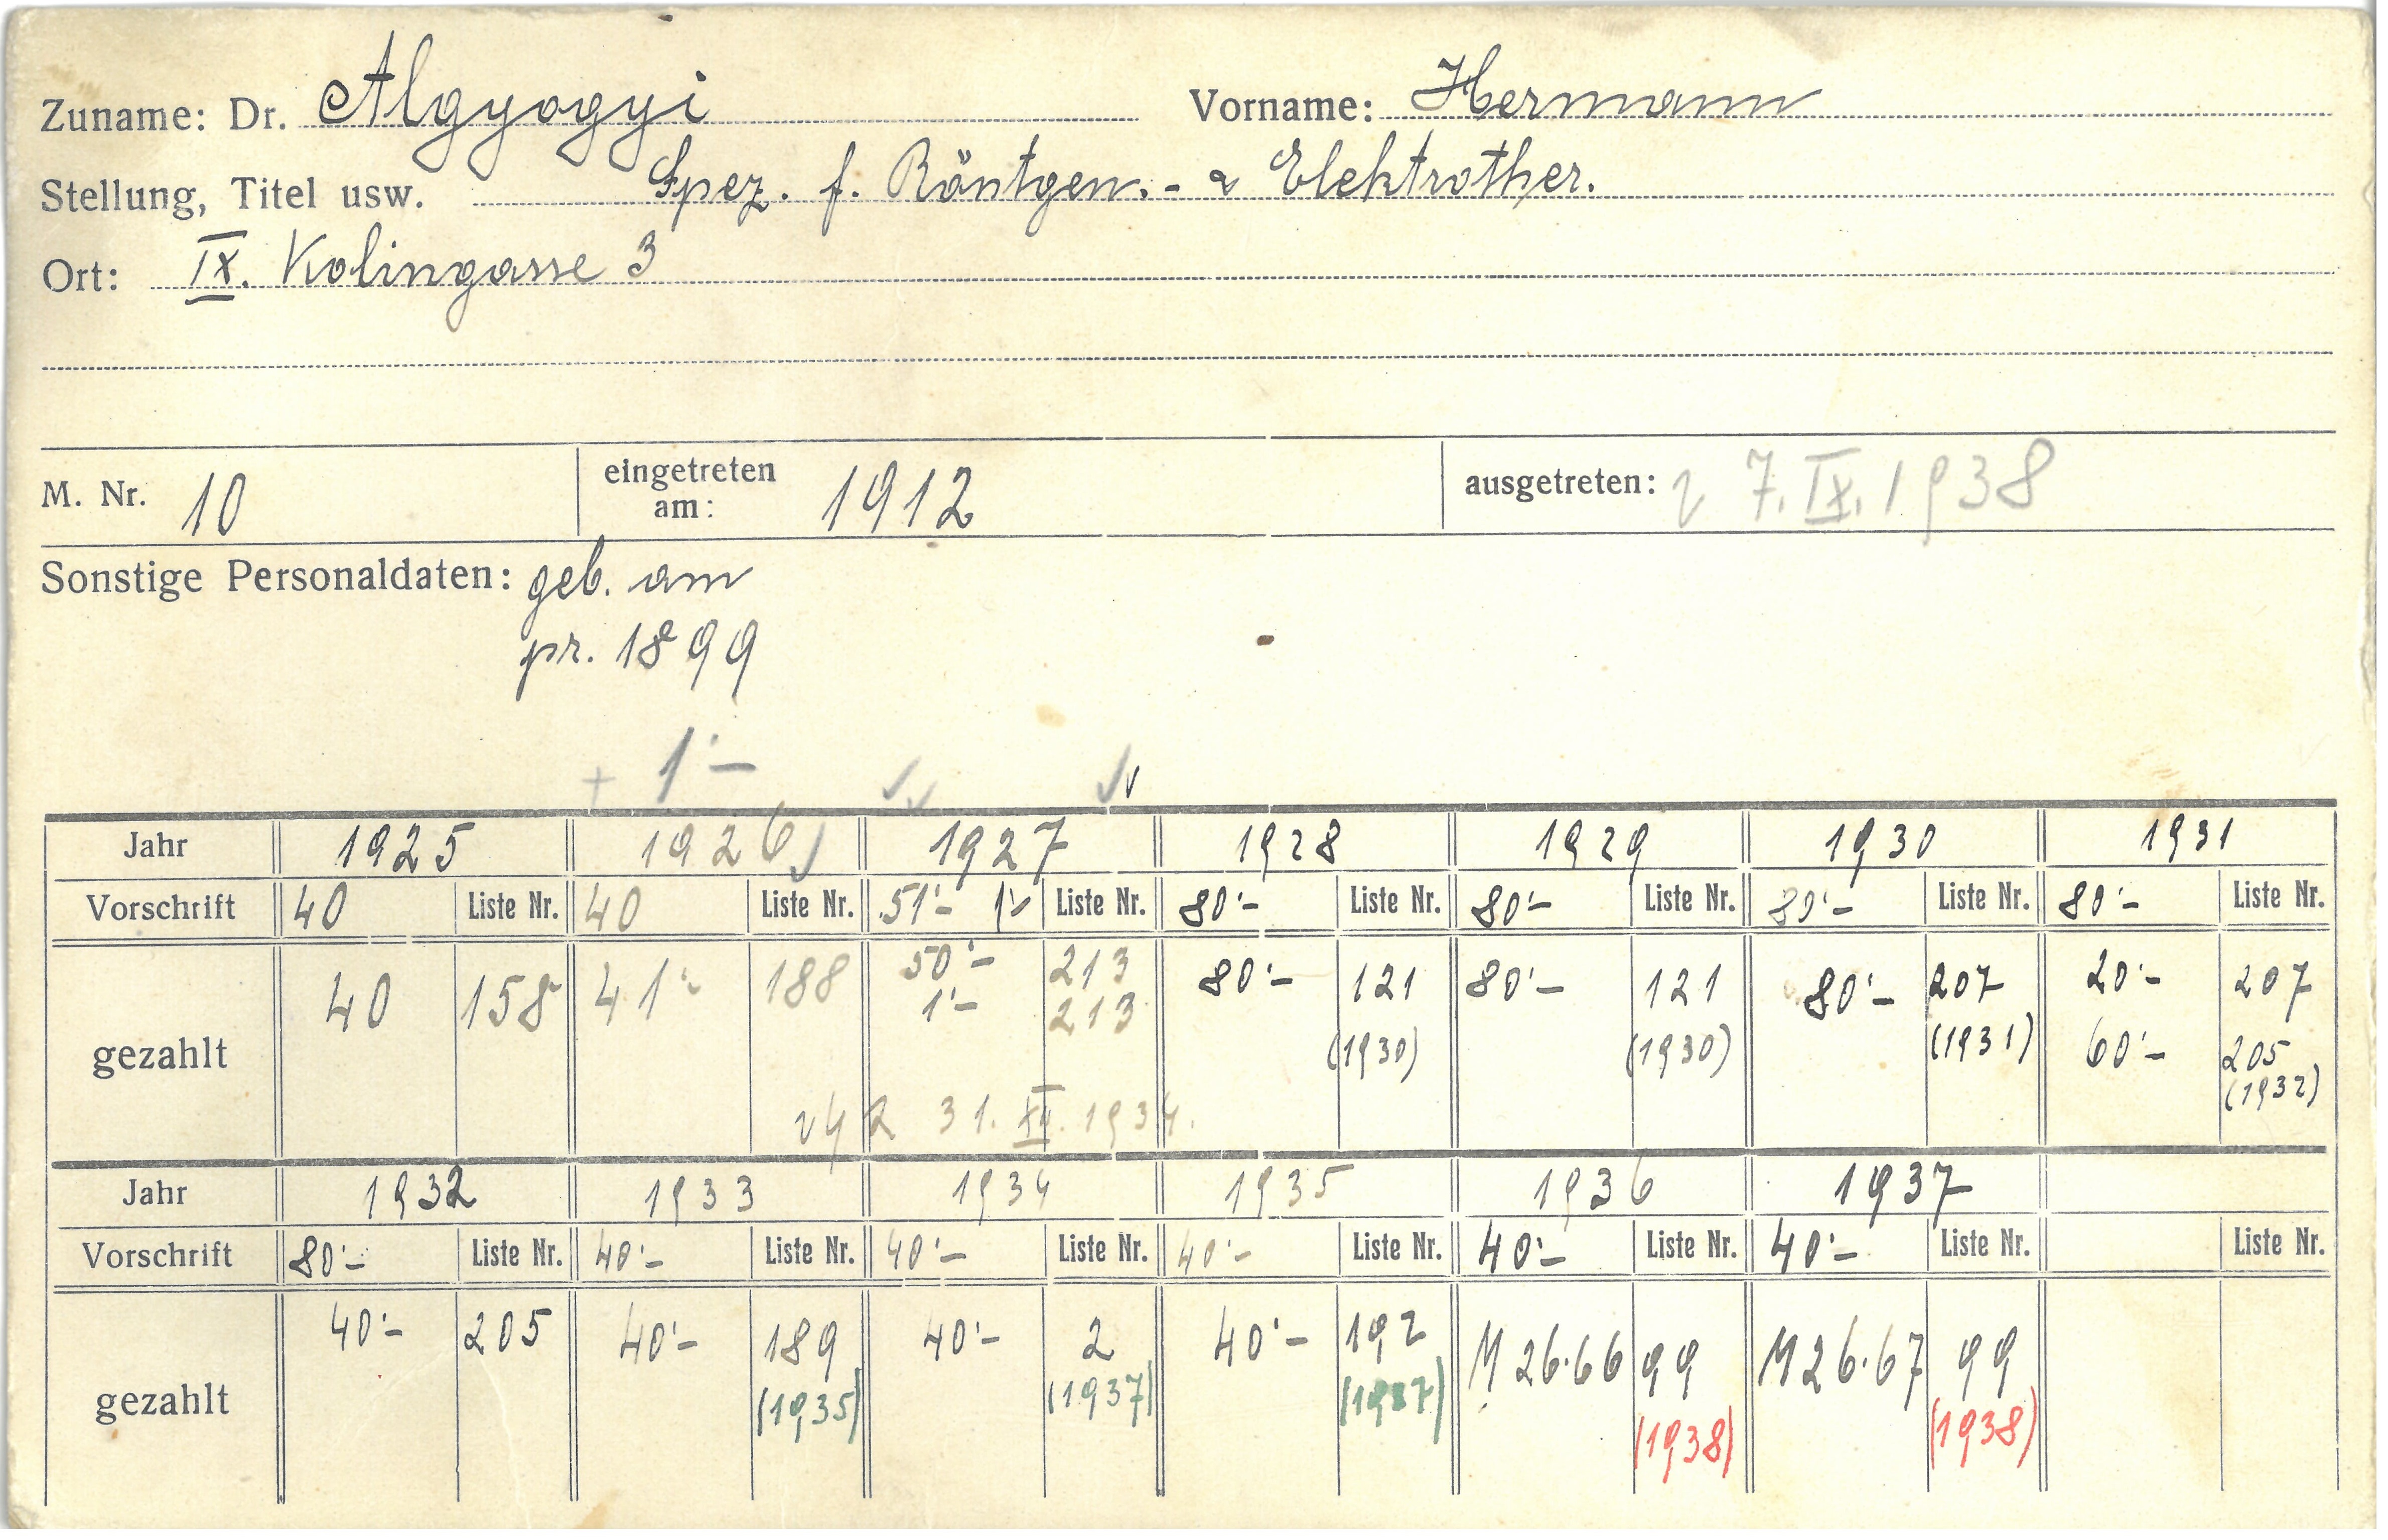 Zuname: Dr. Algyogyi Vorname: Hermann
Stellung, Titel usw. Spez. f. Röntgen.- & Elektrother.
Ort: IX. Kolingasse 3
M. Nr. 10 eingetreten am: 1912 ausgetreten: 7. IX. 1938
Sonstige Personaldaten: geb. am
pr. 1899
+ 1'-
Jahr 1925 1926 1927 1928 1929 1930 1931
Vorschrift 40 Liste Nr. 40 Liste Nr. 51'- Liste Nr. 80'- Liste Nr. 80'- Liste Nr. 80'- Liste Nr. 80'- Liste Nr.
gezahlt 40 158 41'- 188 50'- 213 80'- 121 80'- 121 80'- 207 20'- 207
1'- 213 (1930) (1930) (1931) 60'- 205
(1932)
31. XII. 1934.
Jahr 1932 1933 1934 1935 1936 1937
Vorschrift 80'- Liste Nr. 40'- Liste Nr. 40'- Liste Nr. 40'- Liste Nr. 40'- Liste Nr. 40'- Liste Nr. Liste Nr.
gezahlt 40'- 205 40'- 189 40'- 2 40'- 192 M 26.66 99 M 26.67 99
(1935) (1937) (1937) (1938) (1938)